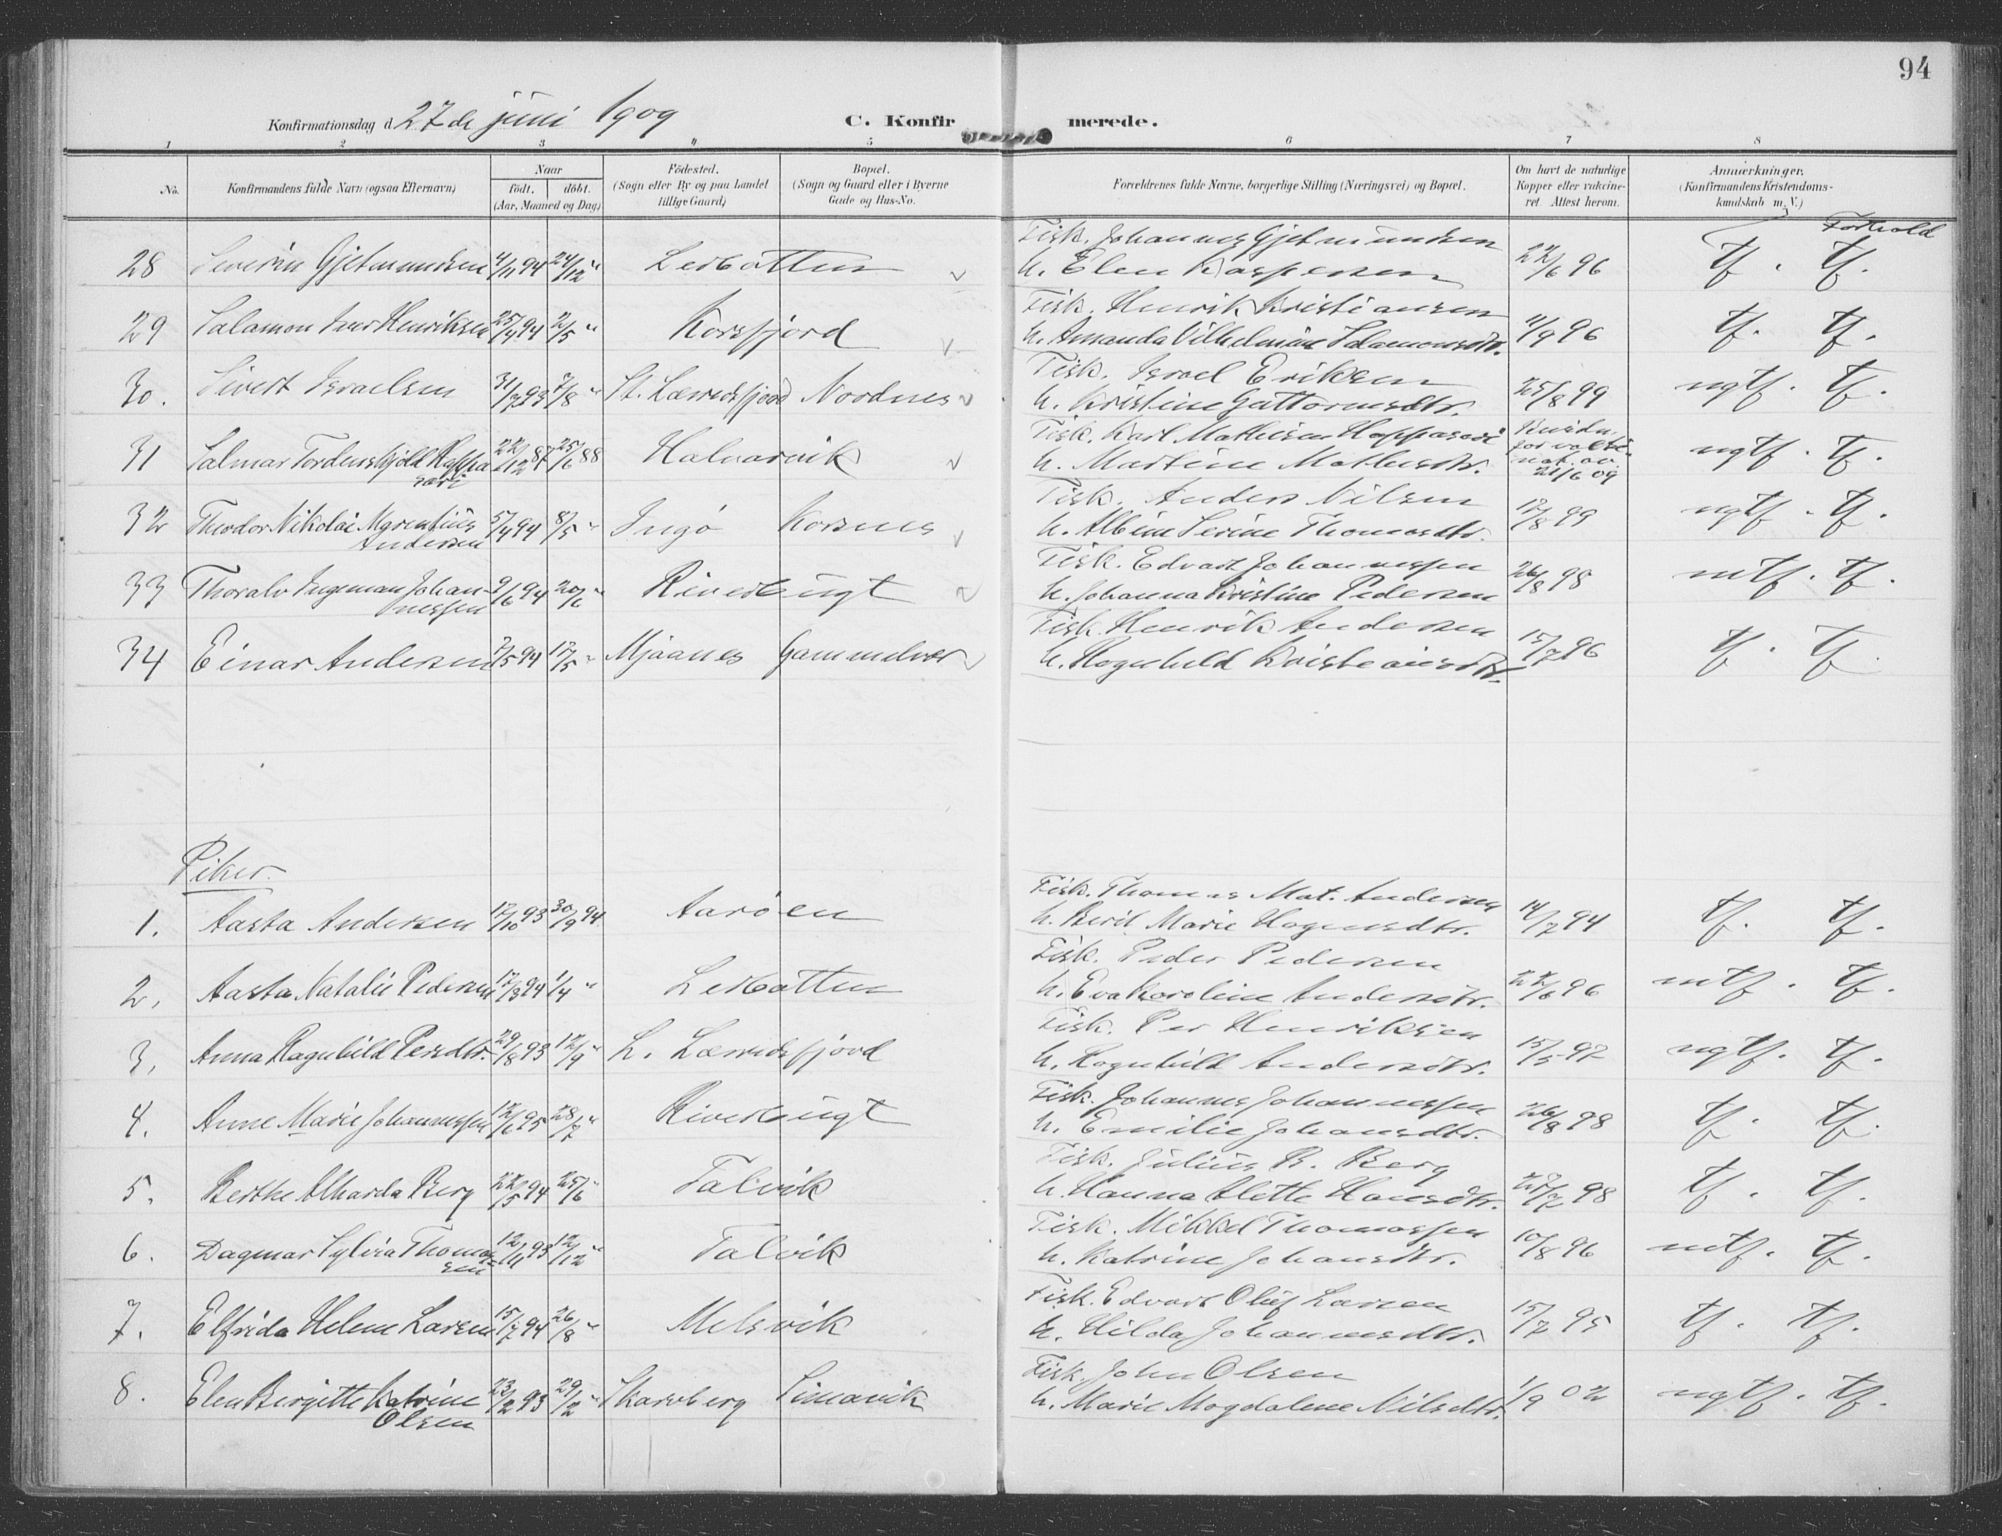 94
Konfirmationsdag d. 27de juni 1909
C. Konfirmerede.
1 2 3 4 5 6 7 8
No. Konfirmandens fulde Navn (ogsaa Efternavn) Naar født, døbt. (Aar, Maaned og Dag) Fødested. (Sogn eller By og paa Landet tillige Gaard) Bopæl. (Sogn og Gaard eller i Byerne Gade og Hus-No. Forældrenes fulde Navne, borgerlige Stilling (Næringsvei) og Bopæl. Om havt de naturlige Kopper eller vakcineret. Attest herom. Anmærkninger. (Konfirmandens Kristendomskundskab m. V.)
Forhold
28 Severin Gjetmundsen 4/11 94 24/12 " Lerbotten Fisk. Johannes Gjetmundsen
h. Elen Kaspersen 22/6 96 tf. tf.
29 Salamon Henriksen 25/4 94 2/5 " Korsfjord Fisk. Henrik Kristiansen
h. Amanda Vilhelmine Salamonsdtr. 4/9 96 tf. tf.
30. Sivert Israelsen 31/7 93 7/8 " St. Lærredsfjord Nordnes Fisk. Israel Eriksen
h. Kristine Guttormsdtr. 25/8 99 ngtf. tf.
31 Salmar Tordenskjold 22/12 87 25/6 88 Halvarvik Fisk. Karl Mathisen
h. Martine Mathisdtr. 21/6 09 ngtf. tf.
32 Theodor Nikolai
Andersen 5/4 94 8/5 " Ingö Korsnes Fisk. Anders Nilsen
h. Albine Serine Thomasdtr. 12/8 99 ngtf. tf.
33 Thoralv Ingeman Johannessen 9/6 94 20/6 " Riverbugt Fisk. Edvart Johannessen
h. Johanna Kristine Pedersen 26/8 98 mtf. tf.
34 Einar Andersen 7/5 94 17/5 " Mjaanes Gammelvær Fisk. Henrik Andersen
h. Ragnhild Kristiansdtr. 15/7 96 tf. tf.
Piker.
1. Aasta Andersen 12/10 93 30/9 94 Aaröen Fisk. Thomas Mat. Andersen
h. Beril Marie Hagensdtr. 14/7 94 tf. tf.
2. Aasta Natalie Pedersen 17/3 94 1/4 " Lerbotten Fisk. Peder Pedersen
h. Eva Karoline Andersdtr. 22/6 96 mtf. tf.
3. Anna Ragnhild Persdtr. 29/8 93 12/9 " L. Lærredsfjord Fisk. Per Henriksen
h. Ragnhild Andersdtr. 15/5 97 ngtf. tf.
4. Anne Marie Johannessen 12/6 95 28/7 " Riverbugt Fisk. Johannes Johannessen
h. Emilie Johansdtr. 26/8 98 tf. tf.
5. Berthe Alharda Berg 22/5 94 25/6 " Talvik Fisk. Julius B. Berg
h. Hanna Alette Hansdtr. 98 tf. tf.
6. Dagmar Sylvia Thomassen 12/11 93 12/12 " Talvik Fisk. Mikkel Thomassen
h. Katrine Johansdtr. 10/8 96 mtf. tf.
7. Elfrida Helene Larsen 15/7 94 26/8 " Melsvik Fisk. Edvart Oluf Larsen
h. Hilda Johannesdtr. 15/7 95 tf. tf.
8. Elen Bergitte Katrine
Olsen 23/2 93 29/2 " Skarvberg Simavik Fisk. John Olsen
h. Marie Magdalene Nilsdtr. 1/9 02 ngtf. tf.